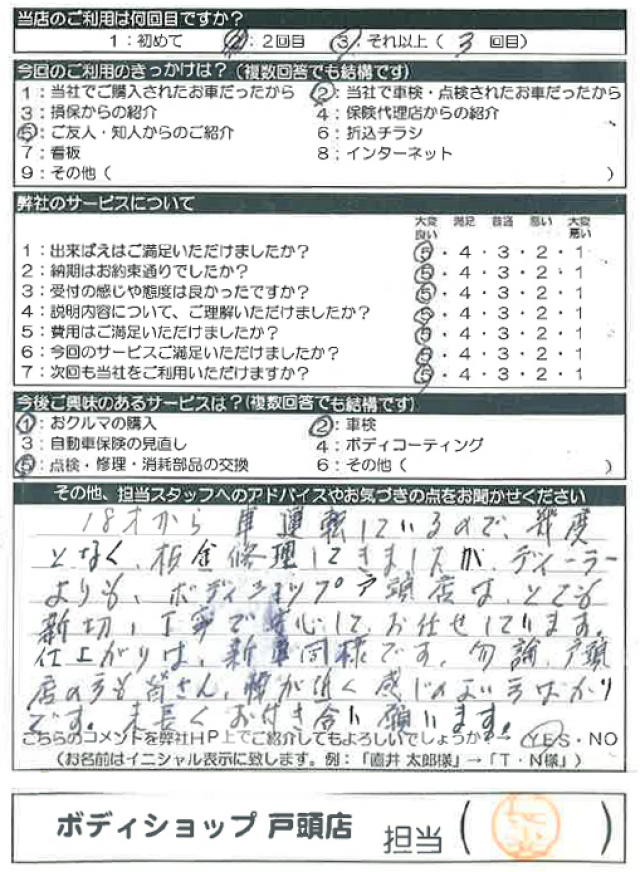 当店のご利用は何回目ですか?
1:初めて 2:2回目 3:それ以上( 3 回目)
今回のご利用のきっかけは?(複数回答でも結構です)
1:当社でご購入されたお車だったから 2:当社で車検・点検されたお車だったから
3:損保からの紹介 4:保険代理店からの紹介
5:ご友人・知人からのご紹介 6:折込チラシ
7:看板 8:インターネット
9:その他( )
弊社のサービスについて
大変良い 満足 普通 悪い 大変悪い
1:出来ばえはご満足いただけましたか? 5・4・3・2・1
2:納期はお約束通りでしたか? 5・4・3・2・1
3:受付の感じや態度は良かったですか? 5・4・3・2・1
4:説明内容について、ご理解いただけましたか? 5・4・3・2・1
5:費用はご満足いただけましたか? 5・4・3・2・1
6:今回のサービスご満足いただけましたか? 5・4・3・2・1
7:次回も当社をご利用いただけますか? 5・4・3・2・1
今後ご興味のあるサービスは?(複数回答でも結構です)
1:おクルマの購入 2:車検
3:自動車保険の見直し 4:ボディコーティング
5:点検・修理・消耗部品の交換 6:その他( )
その他、担当スタッフへのアドバイスやお気づきの点をお聞かせください
18才から車運転しているので、幾度
となく、板金修理してきましたが、ディーラー
よりも、ボディショップ戸頭店は、とても
新切、丁寧で安心して、お任せしています。
仕上がりは、新車同様です。勿論、戸頭
店の方も皆さん、 感じのよい方ばかり
です。末長くお付き合い願います。
こちらのコメントを弊社HP上でご紹介してもよろしいでしょうか?→ YES・NO
(お名前はイニシャル表示に致します。例:「直井 太郎様」→「T・N様」)
ボディショップ 戸頭店 担当( )